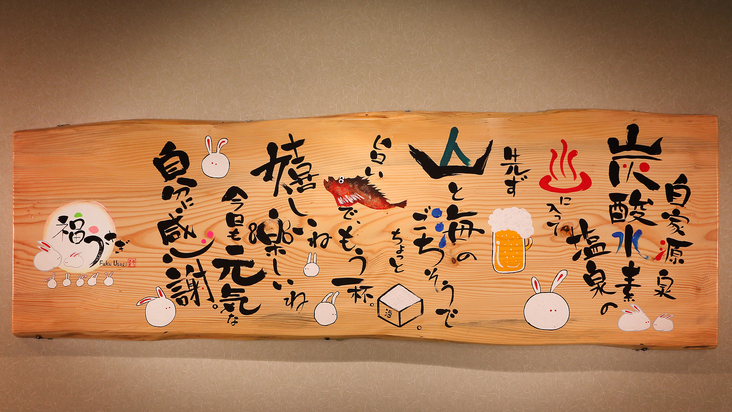 自家源泉
炭酸水素
塩泉の
に入って
先ず
山と海の
ごちそうで
ちょっと
旨い
で、もう一杯。
嬉しいね
楽しいね
今日も元気な
自分に感謝。
福うさぎ
Fuku Usagi
酒